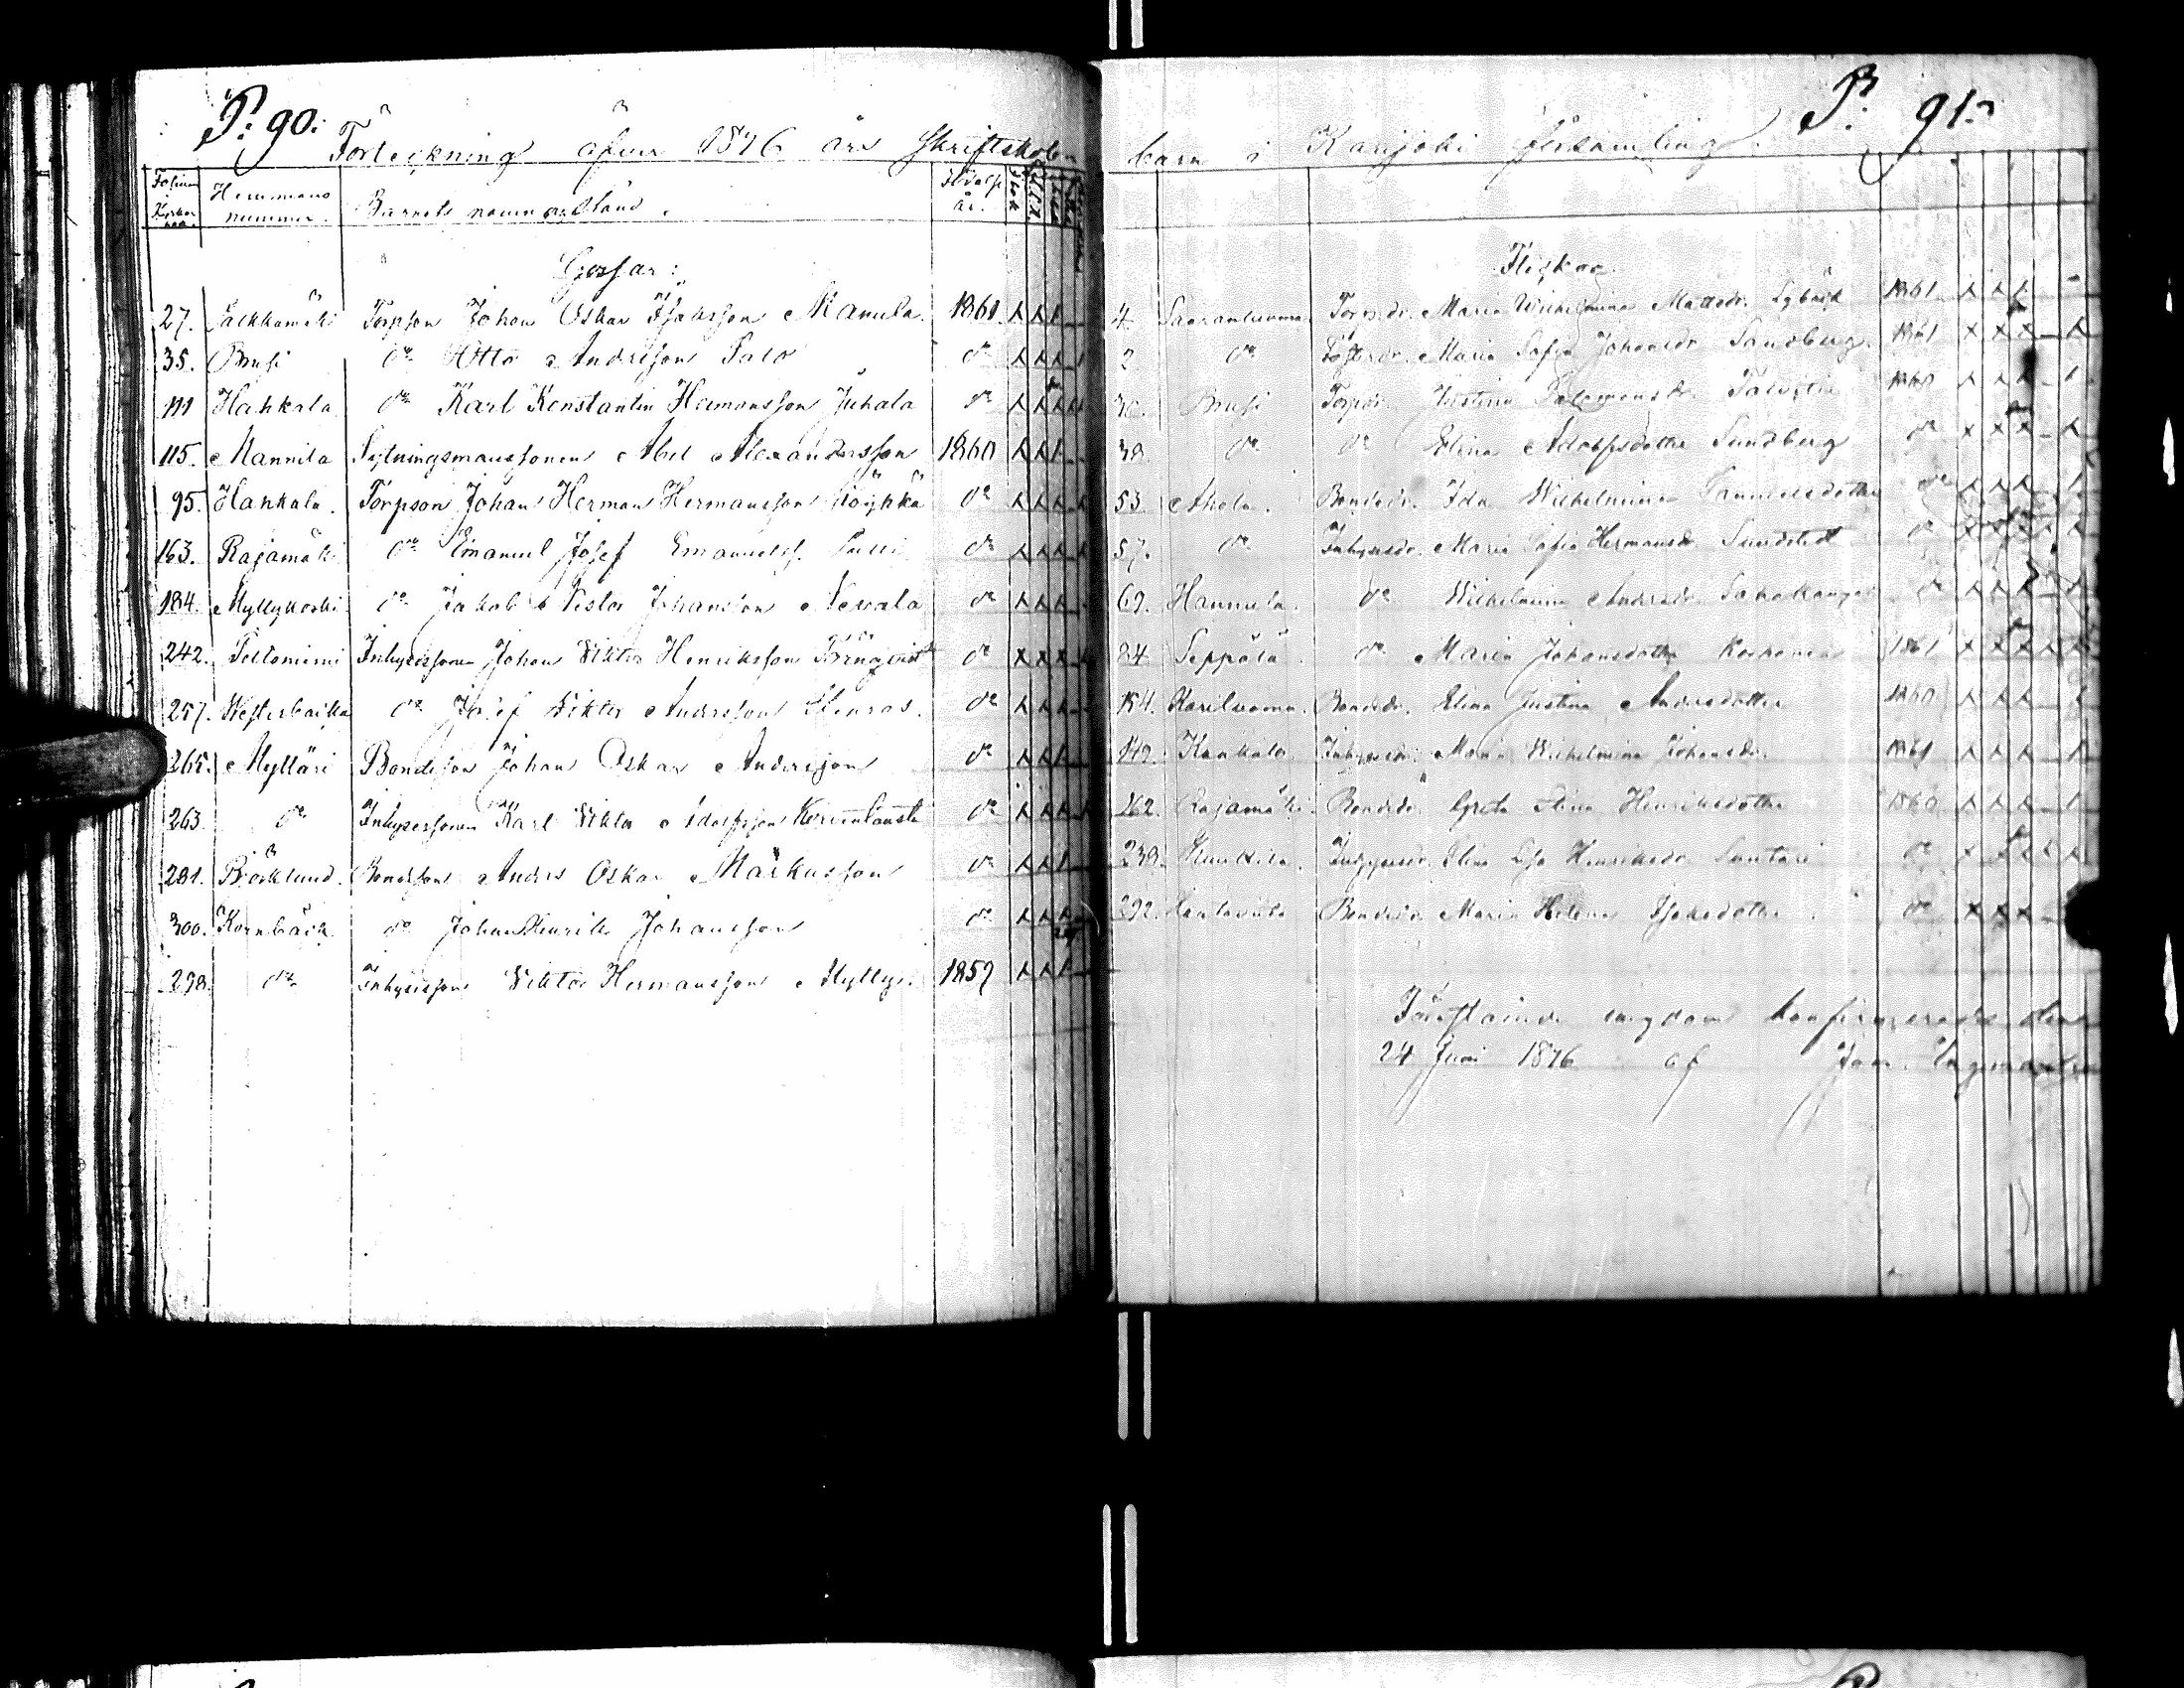 P: 90.
Förteckning öfver 1876 års Skriftskole
Hemmans nummer. Barnets namn och stånd. Födelse år.
Gossar:
27. Jäckkamäki Torpson Johan Oskar Isaksson Mamula 1861
35. Brusi do Otto Andersson Salo do
111 Hahkala do Karl Konstantin Hermansson Juhala do
115. Mannila Sytningsmanssonen Abel Alexandersson 1860
95. Hahkala. Torpson Johan Herman Hermansson do
163. Rajamäki do Emanuel Josef Emanuelss. do
184. Myllykoski do Jakob Nestor Johansson Nevala do
242. Inhysessonen Johan Viktor Henriksson Törnqvist do
257. Westerbacka do Josef Viktor Andersson do
265. Mylläri Bondeson Johan Oskar Andersson do
263. do Inhysessonen Karl Viktor Adolfsson do
281. Björklund. Bondeson Anders Oskar Markusson do
300. Kornbäck do Johan Henrik Johansson do
298. do Inhyseson Viktor Hermansson Mylly 1859
P. 91.
barn i Karijoki församling.
Flickor
4. Saaranluoma Torp.dr. Maria Wilhelmina Mattsdr. Lybäck 1861
2. do Maria Sofia Johansdr. Sandberg 1861
30. Brusi Torpdr. Justina Salomonsdr.
38. do do Elina Adolfsdotter Sundberg do
53. Ahola. Bondedr. Ida Wilhelmina do
57. do Inhysesdr. Maria Sofia Hermansdr. Sundstedt do
69. Hannula. do Wilhelmina Andersdr. do
84. Seppälä. do Maria Johansdotter Korhonen 1861
Kariluoma. Bondedr. Elina Justina Andersdotter 1860
149. Kankalo. Inhysesdr. Maria Wilhelmina Johansdr. 1861
162. Rajamäki Bondedr. Greta Elina Henriksdotter 1860
239. Inhysesdr. Elina Lisa Henriksdr. Luntari do
292. Bondedr. Maria Helena Isaksdotter. do
Förestående ungdom konfirmerades den
24 Juni 1876 af